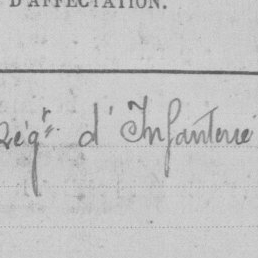 D'AFFECTATION.
Régt d'Infanterie